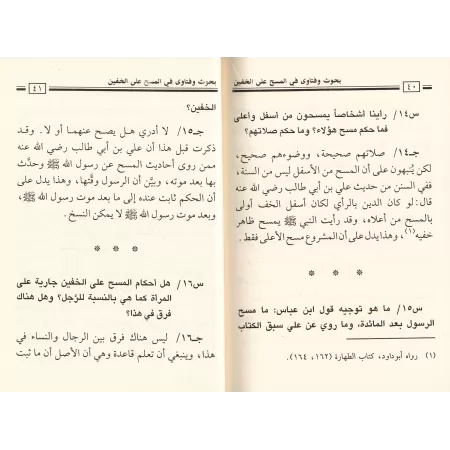 ٤٠
بحوث وفتاوى في المسح على الخفين
س١٤/ رأينا أشخاصاً يمسحون من أسفل وأعلى
فما حكم مسح هؤلاء؟ وما حكم صلاتهم؟
جـ١٤/ صلاتهم صحيحة، ووضوءهم صحيح،
لكن يُنبهون على أن المسح من الأسفل ليس من السنة،
ففي السنن من حديث علي بن أبي طالب رضي الله عنه
قال: لو كان الدين بالرأي لكان أسفل الخف أولى
بالمسح من أعلاه، وقد رأيت النبي ﷺ يمسح ظاهر
خفيه(١)، وهذا يدل على أن المشروع مسح الأعلى فقط.
* * *
س١٥/ ما هو توجيه قول ابن عباس: ما مسح
الرسول بعد المائدة، وما روي عن علي سبق الكتاب
(١) رواه أبوداود، كتاب الطهارة (١٦٢، ١٦٤).
بحوث وفتاوى في المسح على الخفين
٤١
الخفين؟
جـ١٥/ لا أدري هل يصح عنهما أو لا. وقد
ذكرت قبل هذا أن علي بن أبي طالب رضي الله عنه
ممن روى أحاديث المسح عن رسول الله ﷺ وحدَّث
بها بعد موته، وبيَّن أن الرسول وقَّتها، وهذا يدل على
أن الحكم ثابت عنده إلى ما بعد موت رسول الله ﷺ،
وبعد موت رسول الله ﷺ لا يمكن النسخ.
* * *
س١٦/ هل أحكام المسح على الخفين جارية على
المرأة كما هي بالنسبة للرَّجل؟ وهل هناك
فرق في هذا؟
جـ١٦/ ليس هناك فرق بين الرجال والنساء في
هذا، وينبغي أن تعلم قاعدة وهي أن الأصل أن ما ثبت